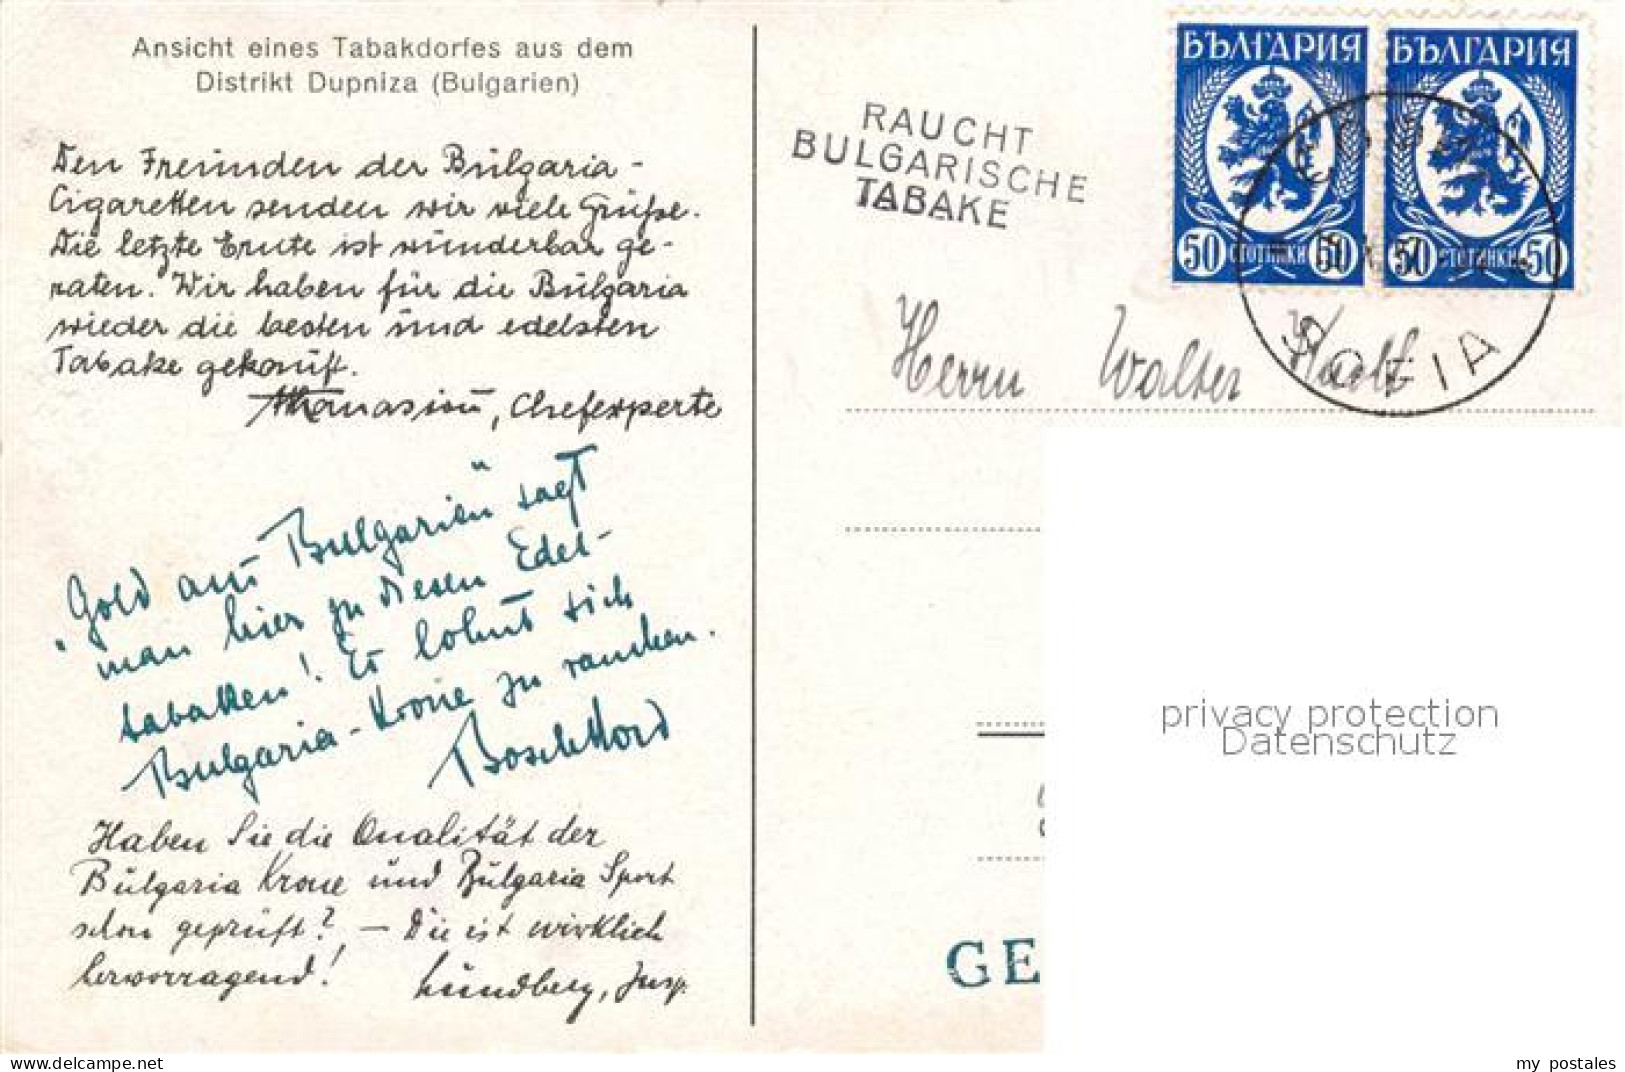 Ansicht eines Tabakdorfes aus dem
Distrikt Dupniza (Bulgarien)
Den Freunden der Bulgaria-
Cigaretten senden wir viele Grüße.
Die letzte Ernte ist wunderbar ge-
raten. Wir haben für die Bulgaria
wieder die besten und edelsten
Tabake gekauft.
Athanasiou, Chefexperte
"Gold aus Bulgarien" sagt
man hier zu diesen Edel-
tabakken! Es lohnt sich
Bulgaria-Krone zu rauchen.
Haben Sie die Qualität der
Bulgaria Krone und Bulgaria Sport
schon geprüft? – Die ist wirklich
hervorragend!
Lundberg, Insp.
RAUCHT
BULGARISCHE
TABAKE
БЪЛГАРИЯ
50 СТОТИНКИ 50
БЪЛГАРИЯ
50 СТОТИНКИ 50
SOFIA
Herrn Walter
privacy protection
Datenschutz
GE
delcampe.net
my_postales